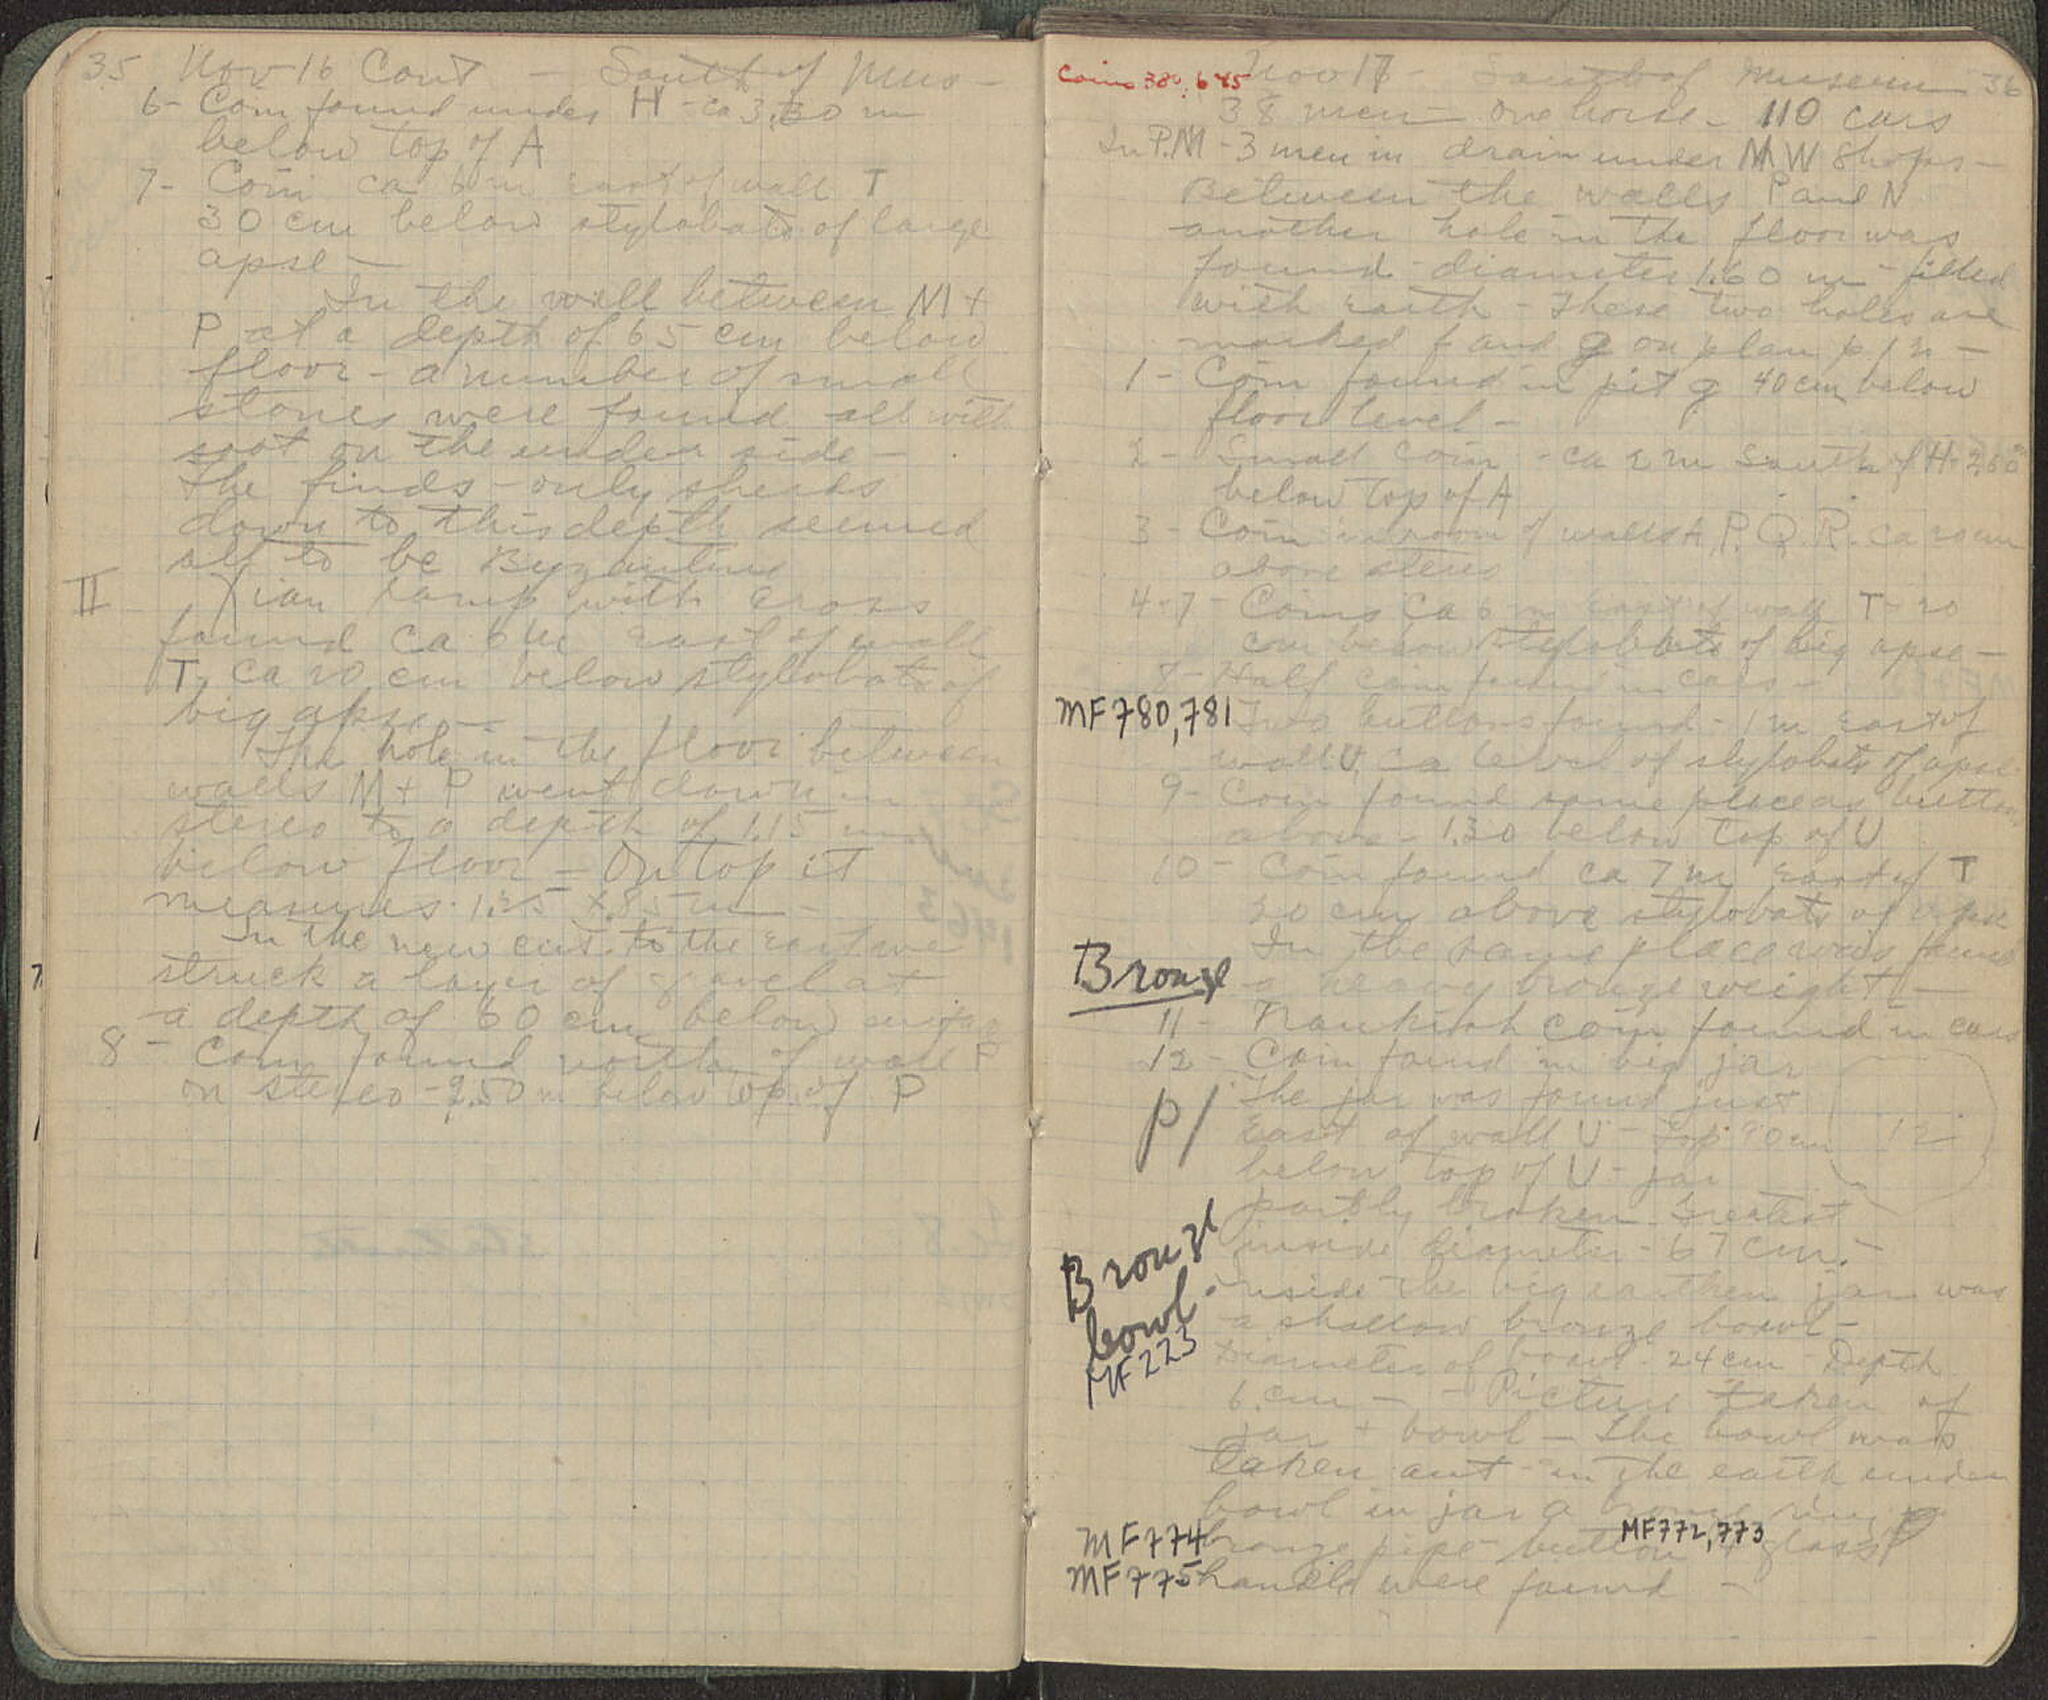 35 Nov 16 Cont - South of Mus -
6- Coin found under H - ca 3.30 m
below top of A
7- Coin ca 6 m east of wall T
30 cm below stylobate of large
apse -
In the wall between M +
P at a depth of 65 cm below
floor - a number of small
stones were found all with
soot on the under side -
The finds - only sherds
down to this depth seemed
all to be Byzantine
II Xian lamp with cross
found ca 6 m east of wall
T, ca 20 cm below stylobate of
big apse -
The hole in the floor between
walls M + P went down in
stereo to a depth of 1.15 m
below floor - On top it
measures 1.25 x .85 m -
In the new cut to the east we
struck a layer of gravel at
a depth of 60 cm below surface
8 - Coin found north of wall P
on stereo - 2.50 m below top of P
Coins 380, 645
Nov 17 - South of Museum 36
38 men - one horse - 110 cars
In P.M - 3 men in drain under NW Shops -
Between the walls P and N
another hole in the floor was
found - diameter 1.60 m - filled
with earth - These two holes are
marked f and g on plan p
1 - Coin found in pit g 40 cm below
floor level -
2 - Small coin - ca 2 m South of H - 2.60
below top of A
3 - Coin in room of walls A, P. Q. R. ca 20 cm
above stereo
4-7 - Coins ca 6 m east of wall T - 20
cm below stylobate of big apse -
8 - Half coin found in cars -
MF 780, 781
Two buttons found - 1 m east of
wall U, ca level of stylobate of apse
9 - Coin found same place as button
above - 1.30 below top of U
10 - Coin found ca 7 m east of T
20 cm above stylobate of apse
In the same place was found
Bronze
a heavy bronze weight -
11 - Frankish coin found in cars
12 - Coin found in big jar
p/
The jar was found just
East of wall U - top 90 cm 12
below top of U - jar
partly broken. Greatest
inside diameter - 67 cm. -
Bronze
bowl
MF 223
Inside the big earthen jar was
a shallow bronze bowl -
Diameter of bowl - 24 cm - Depth
6 cm - - Picture taken of
jar + bowl - The bowl was
taken out - in the earth under
bowl in jar a bronze ring
MF 772, 773
MF 774 bronze pipe button + glass
MF 775 handle were found -